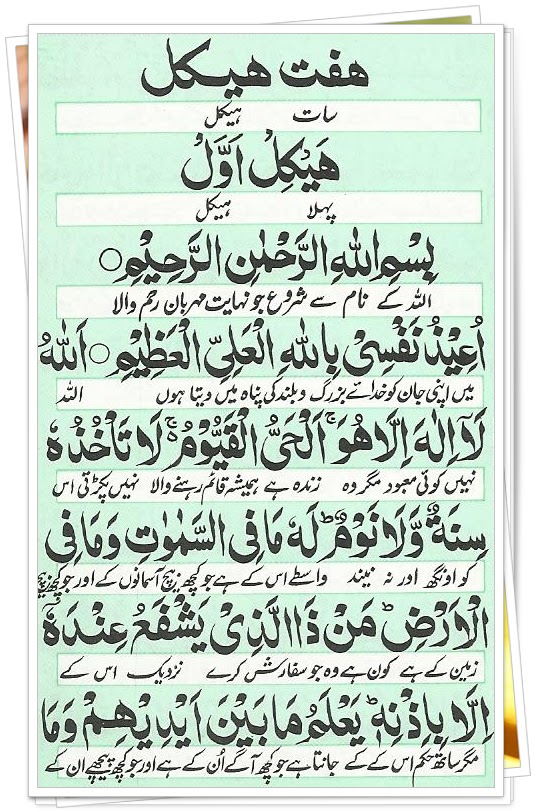 ہفت ہیکل
سات ہیکل
هَیْکِلْ اَوَّلْ
پہلا ہیکل
بِسْمِ اللهِ الرَّحْمٰنِ الرَّحِیْمِ ○
اللہ کے نام سے شروع جو نہایت مہربان رحم والا
اُعِیْذُ نَفْسِیْ بِاللهِ الْعَلِیِّ الْعَظِیْمِ ○ اَللهُ
میں اپنی جان کو خدائے بزرگ و بلند کی پناہ میں دیتا ہوں اللہ
لَآ اِلٰهَ اِلَّا هُوَ ۚ اَلْحَیُّ الْقَیُّوْمُ ۚ لَا تَاْخُذُهٗ
نہیں کوئی معبود مگر وہ زندہ ہے ہمیشہ قائم رہنے والا نہیں پکڑتی اس
سِنَةٌ وَّلَا نَوْمٌ ؕ لَهٗ مَا فِی السَّمٰوٰتِ وَمَا فِی
کو اونگھ اور نہ نیند واسطے اس کے ہے جو کچھ بیچ آسمانوں کے اور جو کچھ بیچ
الْاَرْضِ ؕ مَنْ ذَا الَّذِیْ یَشْفَعُ عِنْدَهٗۤ
زمین کے ہے کون ہے وہ جو سفارش کرے نزدیک اس کے
اِلَّا بِاِذْنِهٖ ؕ یَعْلَمُ مَا بَیْنَ اَیْدِیْهِمْ وَمَا
مگر ساتھ حکم اس کے کے جانتا ہے جو کچھ آگے اُن کے ہے اور جو کچھ پیچھے ان کے